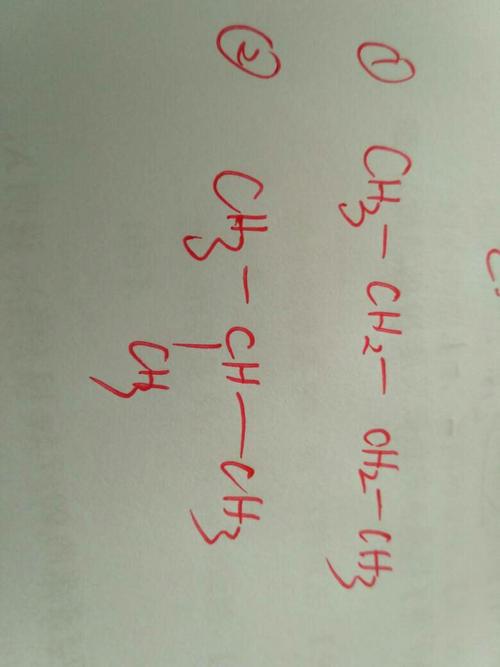 ① CH3—CH2—CH2—CH3
② CH3—CH—CH3
|
CH3